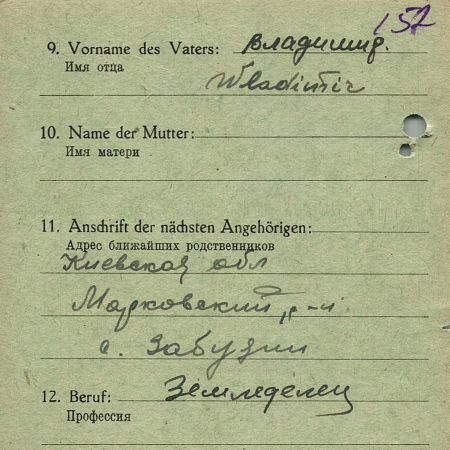 152
9. Vorname des Vaters: Владимир.
Имя отца
Wladimir
10. Name der Mutter:
Имя матери
11. Anschrift der nächsten Angehörigen:
Адрес ближайших родственников
Киевская обл
Марковский р-н
с. Забудин
12. Beruf: Земледелец
Профессия